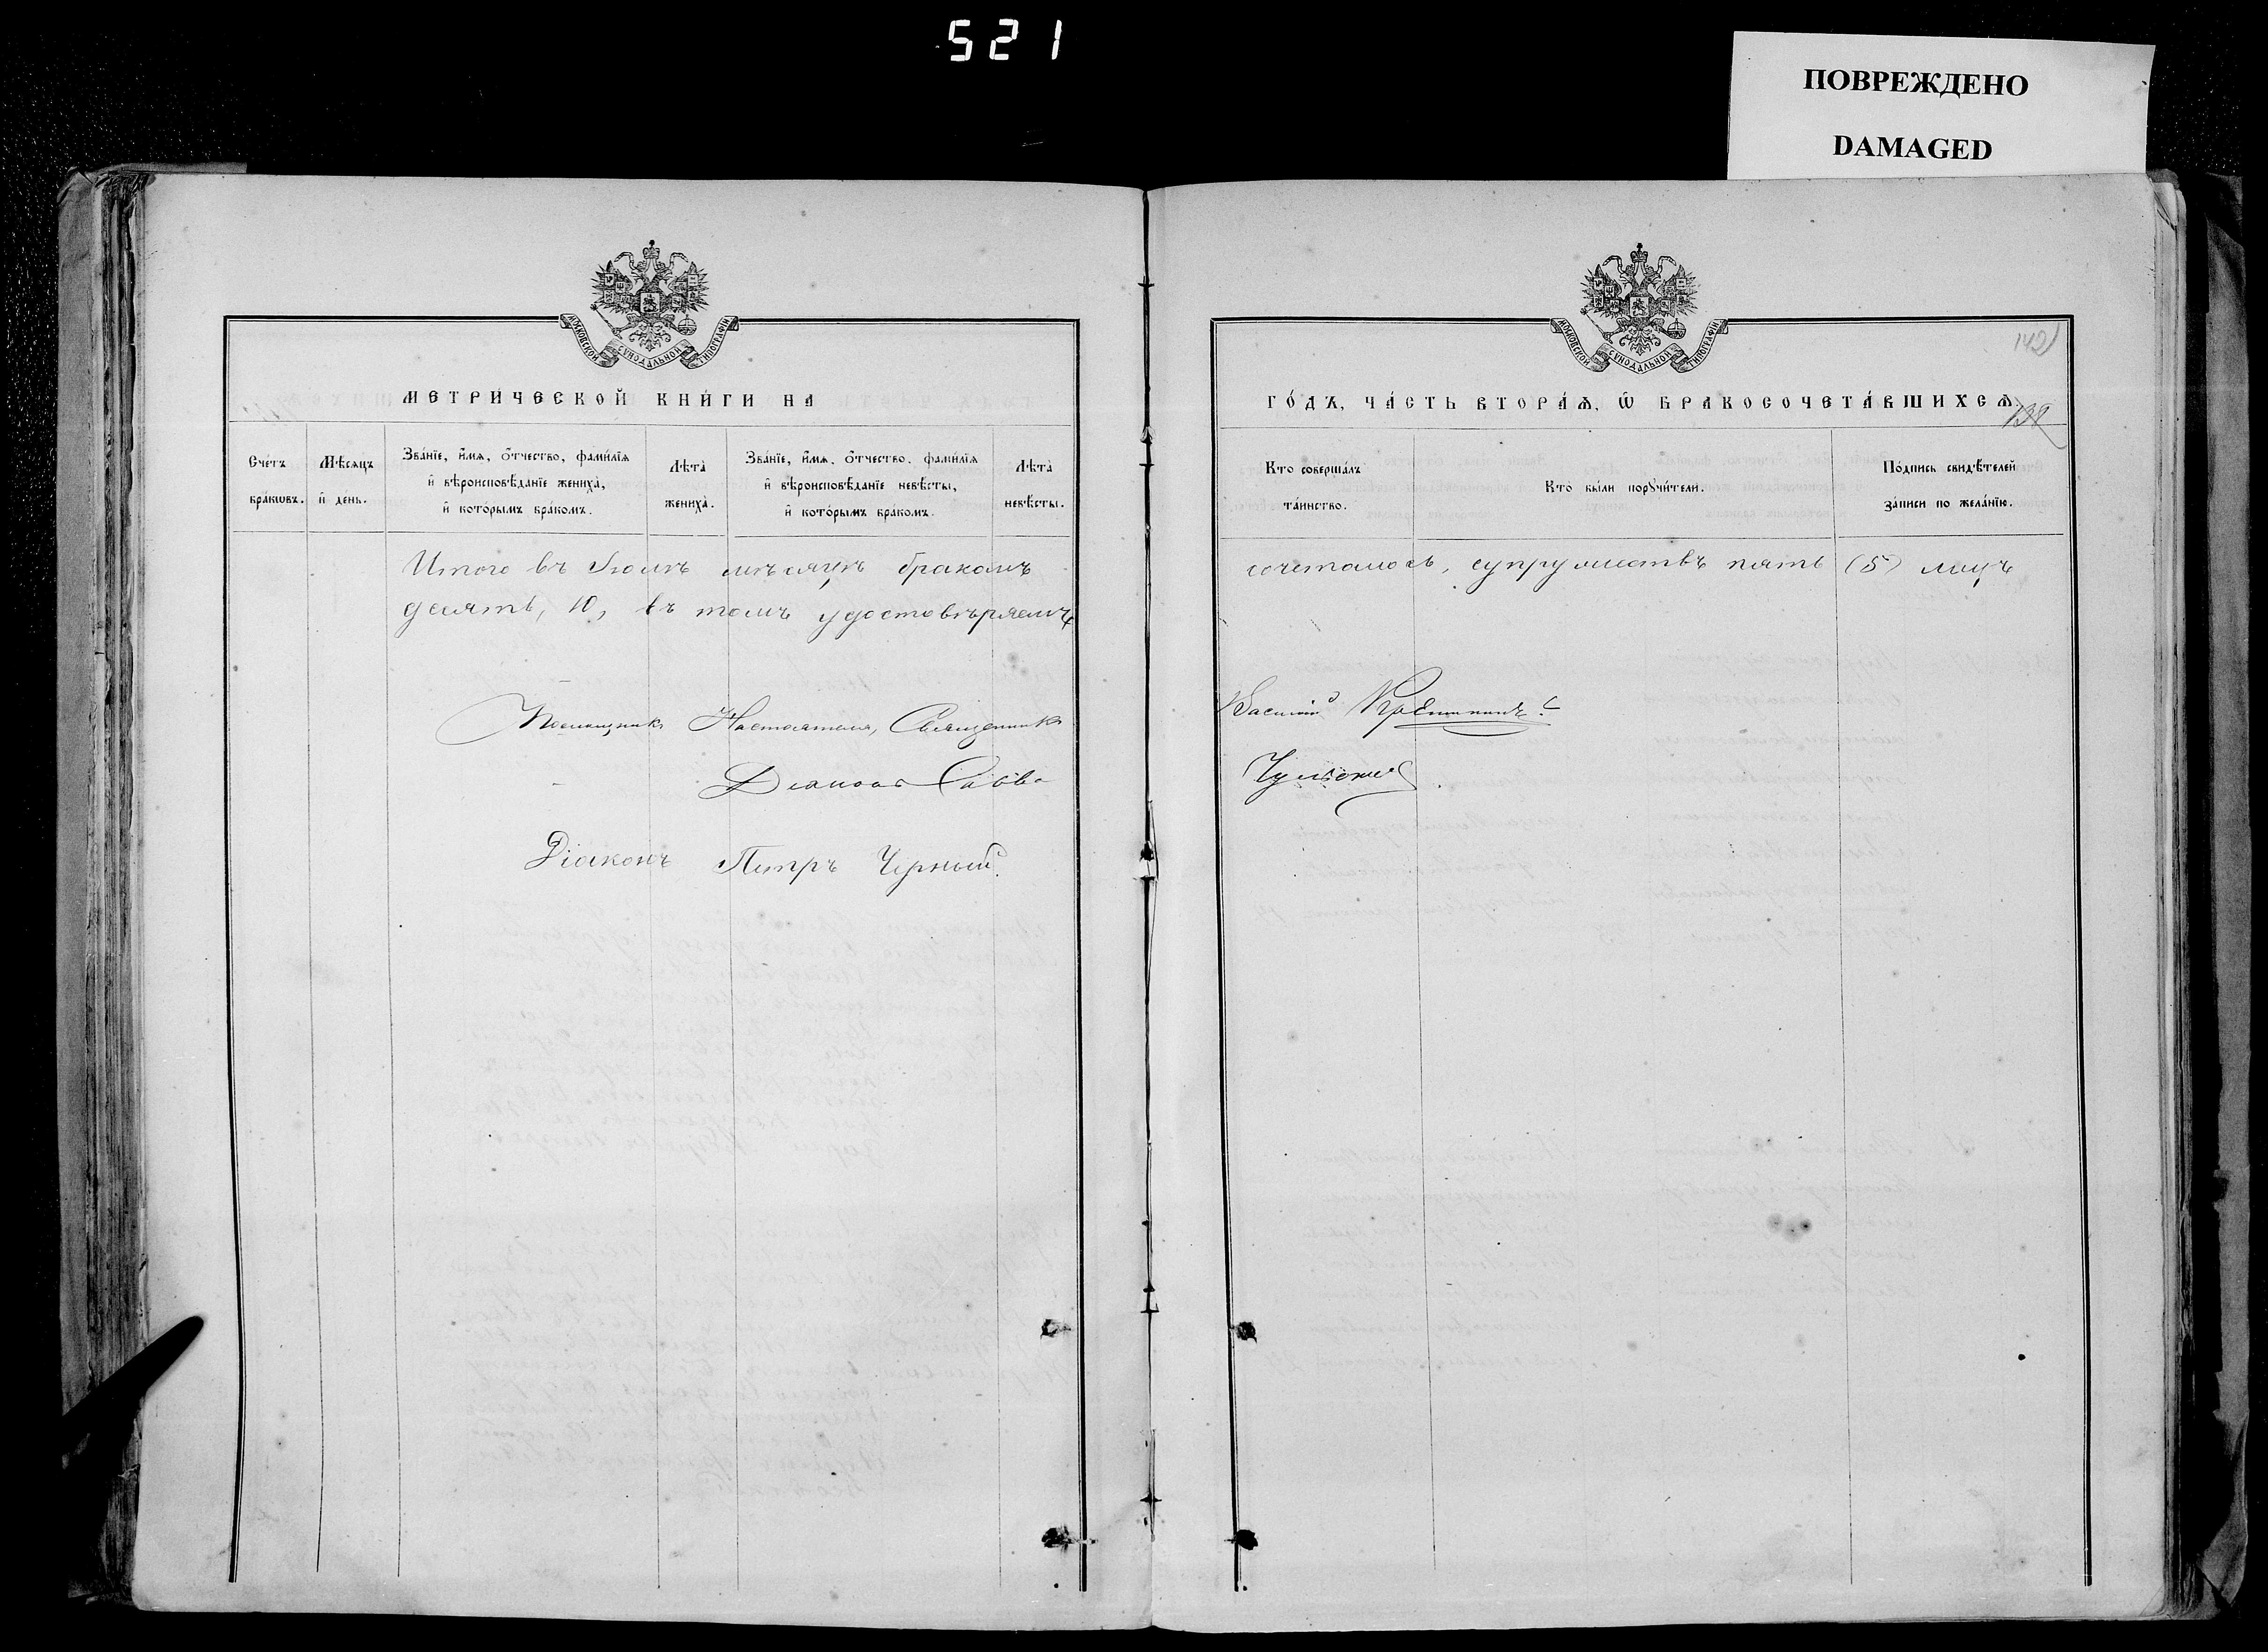 521
ПОВРЕЖДЕНО
DAMAGED
МОСКОВСКОЙ СУНОДАЛЬНОЙ ТИПОГРАФІИ
МЕТРИ́ЧЕСКОЙ КНИ́ГИ НА
Сче́тъ бра́кωвъ.
Мѣ́сѧцъ и҆ де́нь.
Зва́нїе, и҆́мѧ, ѻ҆́тчество, фами́лїѧ
и҆ вѣроисповѣ́данїе жениха̀,
и҆ кото́рымъ бра́комъ.
Лѣ́та̀
жениха̀.
Зва́нїе, и҆́мѧ, ѻ҆́тчество, фами́лїѧ
и҆ вѣроисповѣ́данїе невѣ́сты,
и҆ кото́рымъ бра́комъ.
Лѣ́та̀
невѣ́сты.
Итого въ Іюлѣ мѣсяцѣ бракомъ
десять, 10, въ томъ удостовѣряемъ
Помощникъ Настоятеля, Священникъ
Савва
Діаконъ Петръ Черный.
МОСКОВСКОЙ СУНОДАЛЬНОЙ ТИПОГРАФІИ
142
ГО́ДЪ, ЧА́СТЬ ВТОРА́Ѧ, Ѽ БРАКОСОЧЕТА́ВШИХСѦ.
138
Кто̀ соверша́лъ
та́инство.
Кто̀ бы́ли порꙋчи́тели.
По́дпись свидѣ́телей
за́писи по жела́нїю.
сочеталось, супружествъ пять (5) лицъ
Василій